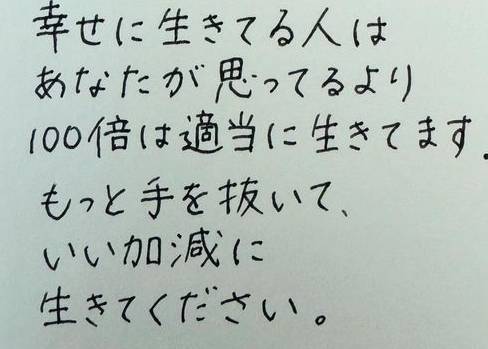 幸せに生きてる人は
あなたが思ってるより
100倍は適当に生きてます.
もっと手を抜いて、
いい加減に
生きてください。